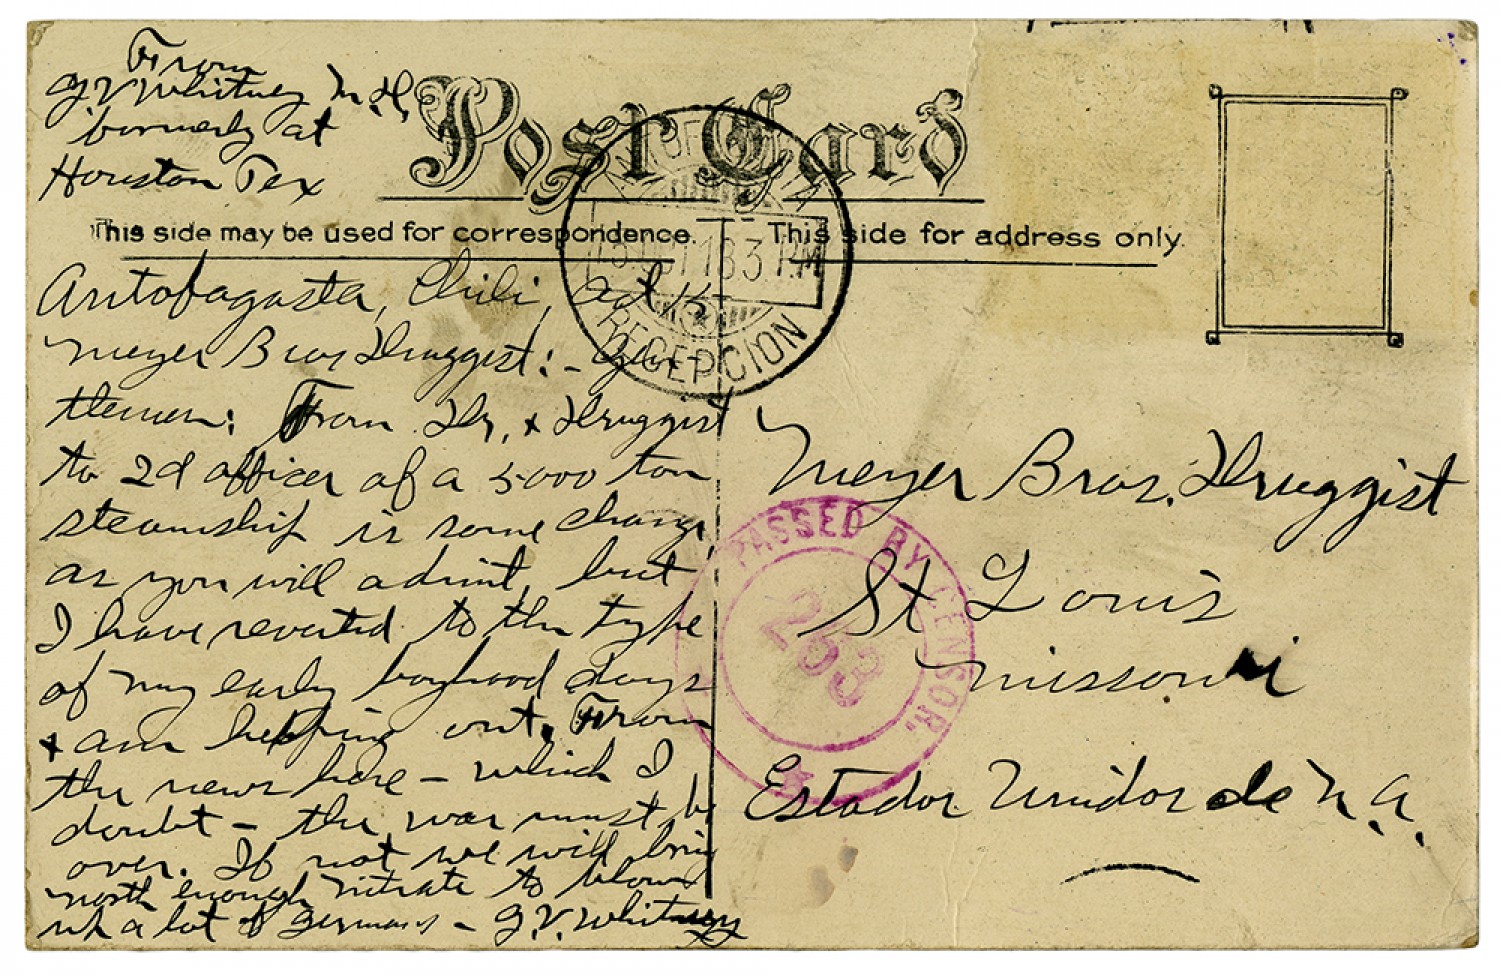 From
G V Whitney M.D.,
formerly at
Houston Tex
Post Card
This side may be used for correspondence.
This side for address only.
RECEPCION
Antofagasta, Chili, Oct 15
Meyer Bros Druggist: - Gen-
tlemen: From Dr, + Druggist
to 2d officer of a 5000 ton
steamship is some change,
as you will admit, but
I have reverted to the type
of my early boyhood days
+ am helping out. From
the news here - which I
doubt - the war must be
over. If not we will bring
north enough nitrate to blow
up a lot of Germans - G.V. Whitney
Meyer Bros. Druggist
St Louis
Missouri
Estados Unidos de N.A.
PASSED BY CENSOR.
253